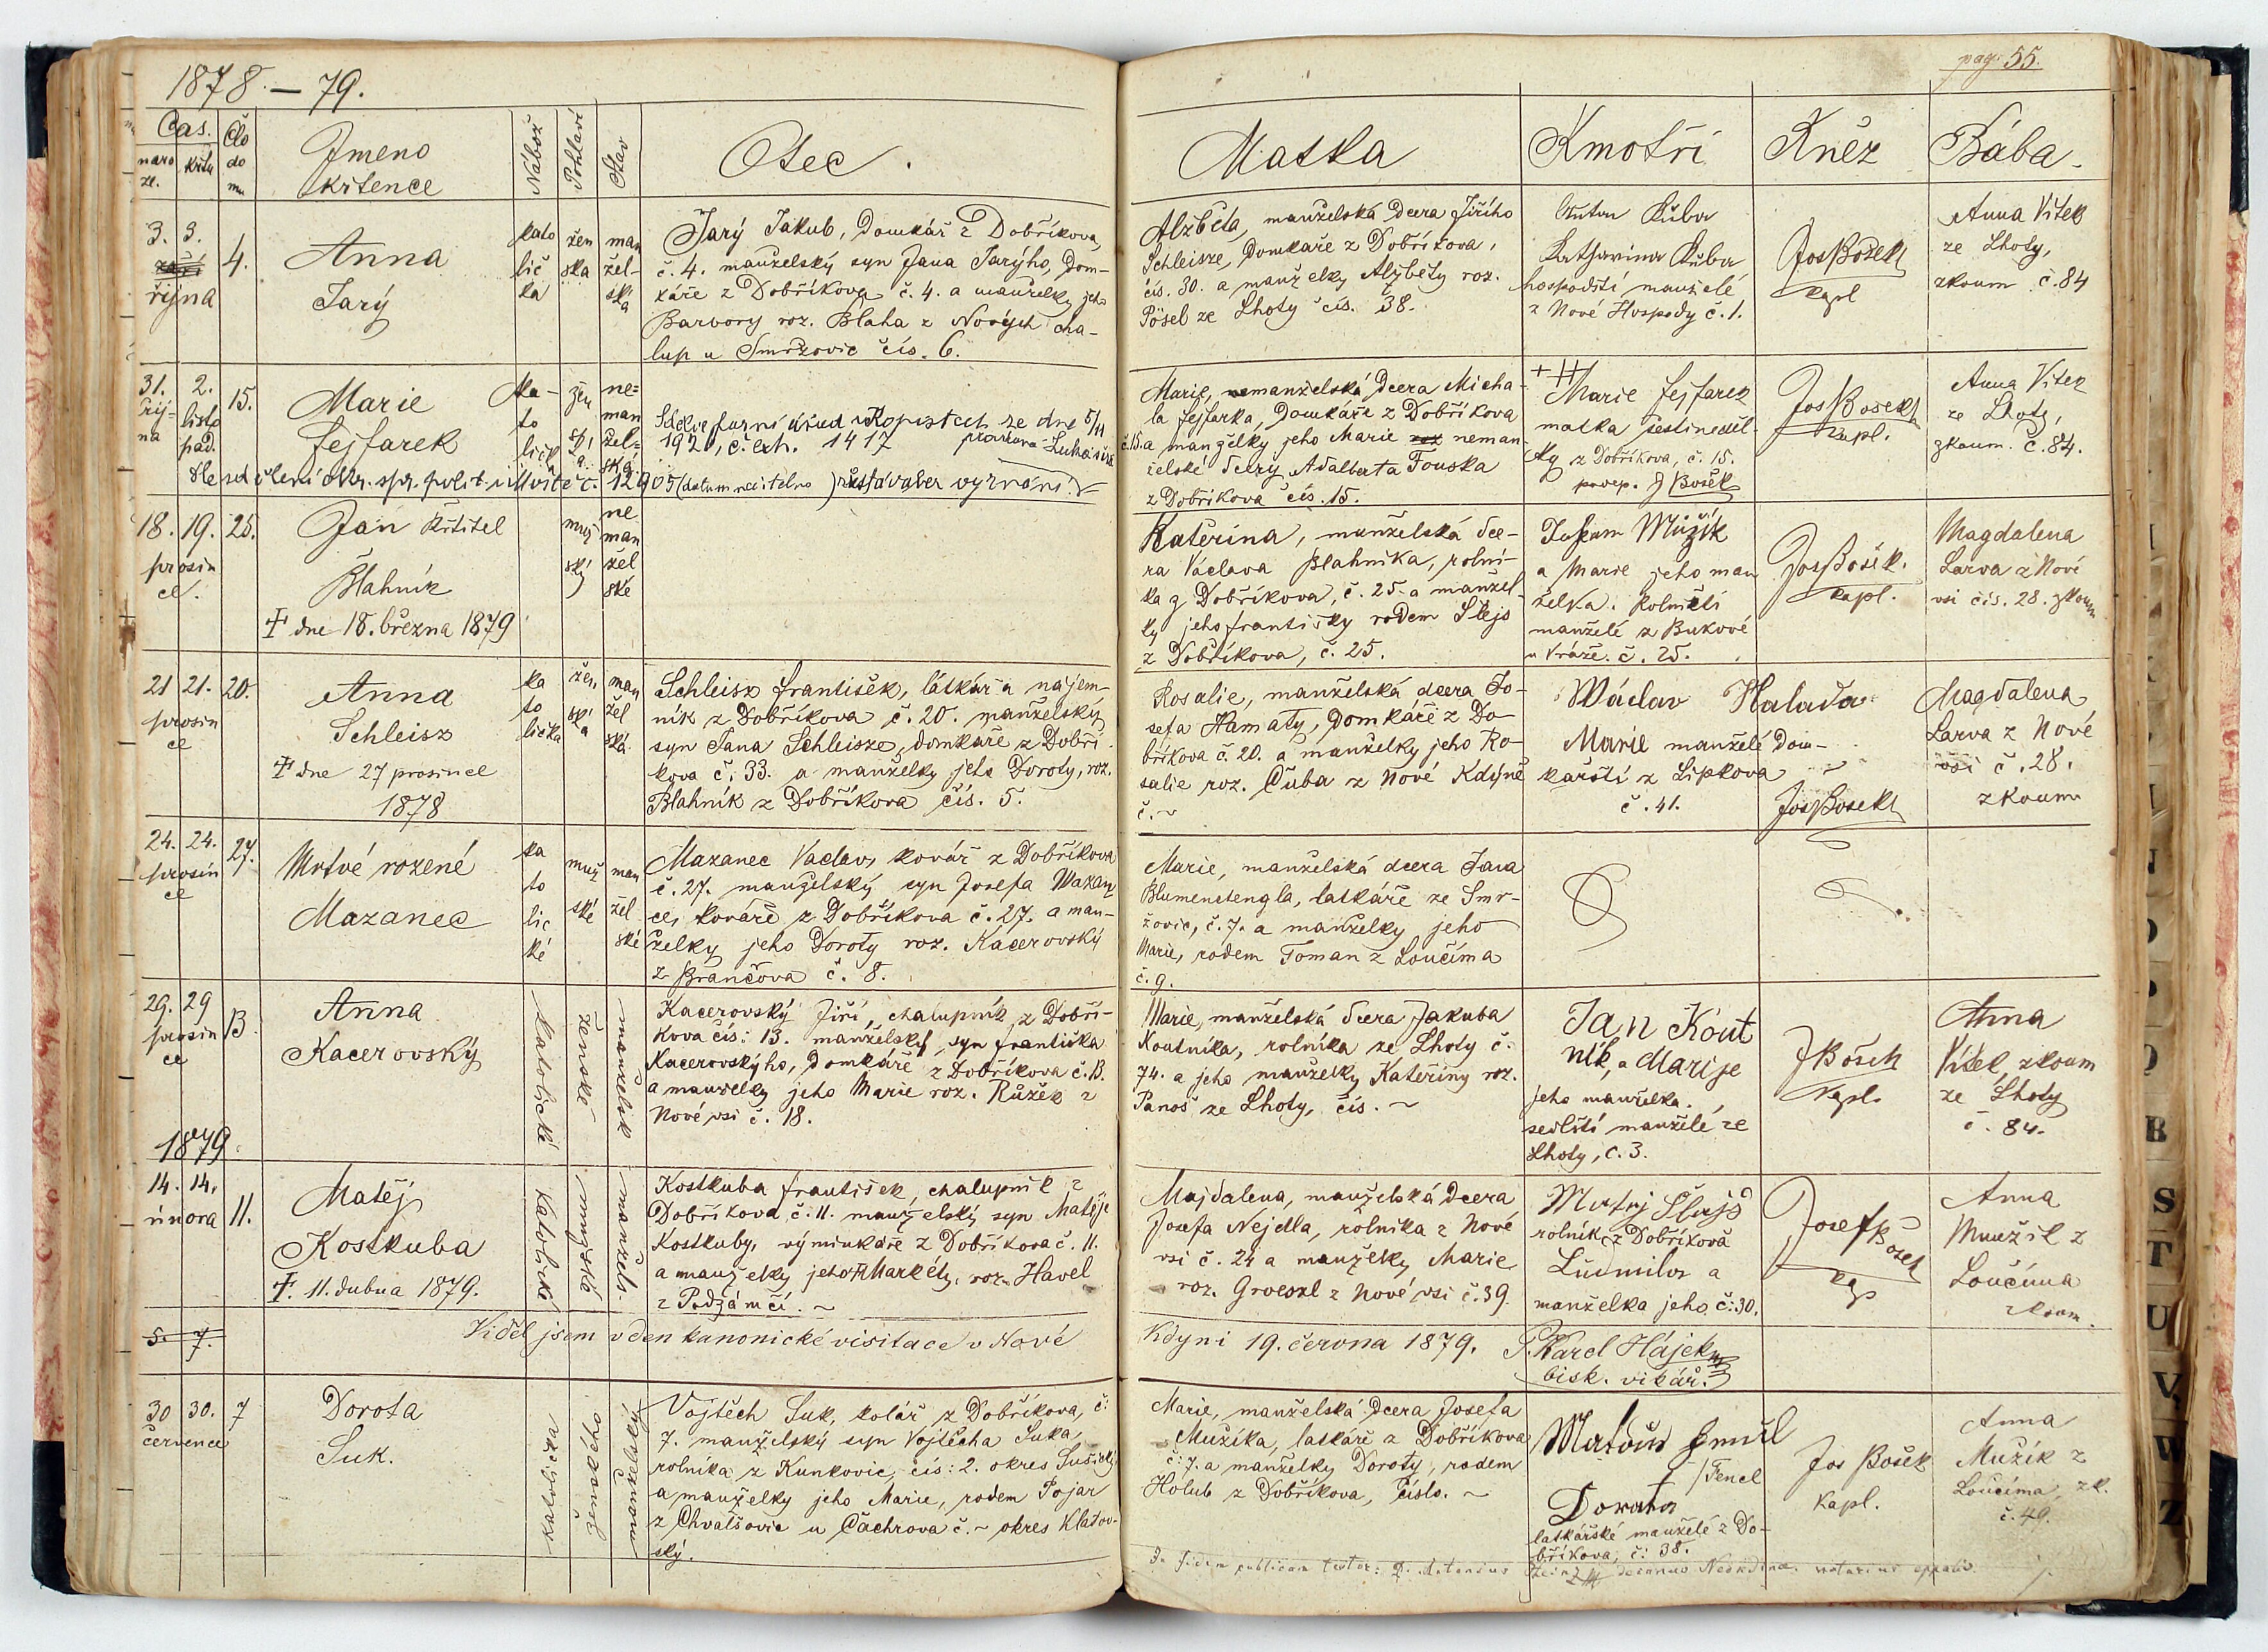 1878. — 79.
pag: 55.
Čas.
naro
ze.
křtu
Čís
do
mu
Jmeno
křtence
Nábož
Pohlaví
Stav
Otec.
Matka
Kmotři
Kněz
Bába.
3. 3.
září
října
4.
Anna
Jarý
kato
lič
ka
žen
ska
man
žel-
ská
Jarý Jakub, Domkář z Dobříkova,
č. 4. manželský syn Jana Jarýho, Dom-
káře z Dobříkova č. 4. a manželky jeho
Barbory roz. Blaha z Nových cha-
lup u Smržovic čís. 6.
Alžběta, manželská Dcera Jiřího
Schleisze, Domkaře z Dobříkova,
čís. 30. a manželky Alžběty roz.
Pösel ze Lhoty čís. 38.
Anton Kuba
Katharina Kuba
hospodští manželé
z Nové Hospody č. 1.
Jos Bošek
kapl
Anna Vítek
ze Lhoty,
zkoum č. 84
31. 2.
říj-
na
listo
pad.
15.
Marie
Fejfarek
ka-
to
lička
žen
ská
ne=
man
žel-
ská.
Sdělve farní úřad v Kopistech ze dne 5/11
192, č. exh. 1417
dle sdělení okr. spr. polit. v Mostě č. 12905 (datum nečitelno) zůstává bez vyznání.
Marie, nemanželská Dcera Micha-
la Fejfarka, Domkaře z Dobříkova
č. 15. a manželky jeho Marie roz neman-
želské dcery Adalberta Fouska
z Dobříkova čís. 15.
+++
Marie Fejfarek
matka šestineděl-
ky z Dobříkova, č. 15.
podep. J Bošek
Jos Bošek
kapl.
Anna Vítek
ze Lhoty,
zkoum. č. 84.
18. 19. 25.
prosin
ce.
Jan Křtitel
Blahník
† dne 18. března 1879
muž
ský
ne
man
žel
ské
Kateřina, manželská dce-
ra Václava Blahníka, rolní-
ka z Dobříkova, č. 25. a manžel-
ky jeho Františky rodem Šlejs
z Dobříkova, č. 25.
Mužík
a Marie jeho man
želka. Rolničtí
manželé z Bukové
u Vráže. č. 25.
Jos Bošek.
kapl.
Magdalena
Larva z Nové
vsi čís. 28. zkoum
21 21. 20.
prosin
ce
Anna
Schleisz
† dne 27 prosince
1878
ka
to
lička
žen
ská
man
žel
ská.
Schleisz František, látkář a nájem-
ník z Dobříkova č. 20. manželský
syn Jana Schleisze, domkaře z Dobří-
kova č. 33. a manželky jeho Doroty, roz.
Blahník z Dobříkova čís. 5.
Rosalie, manželská dcera Jo-
sefa Hamaty, Domkáře z Do-
bříkova č. 20. a manželky jeho Ro-
salie roz. Čuba z Nové Kdyně
č. ~
Wáclav Halada
Marie manželé Dom-
kářští z Lipkova
č. 41.
Jos Bošek
Magdalena
Larva z Nové
vsi č. 28.
zkoum
24. 24. 27.
prosin
ce
Mrtvé rozené
Mazanec
ka
to
lic
ké
muž
ské
man
žel
ské
Mazanec Vaclav, kovář z Dobříkova
č. 27. manželský syn Josefa Mazan
ce, kováře z Dobříkova č. 27. a man-
želky jeho Doroty roz. Kacerovský
z Brančova č. 8.
Marie, manželská dcera Jana
Blumenstengla, latkáře ze Smr-
žovic, č. 7. a manželky jeho
Marie, rodem Toman z Loučíma
č. 9.
29. 29
prosin
ce
13.
Anna
Kacerovský
katolické
ženské
manželsk
Kacerovský Jiří, chalupník z Dobří-
kova čís: 13. manželský syn Františka
Kacerovskýho, Domkáře z Dobříkova č. 13.
a manželky jeho Marie roz. Růžek z
Nové vsi č. 18.
Marie, manželská dcera Jakuba
Koutníka, rolníka ze Lhoty č.
74. a jeho manželky Kateřiny roz.
Panoš ze Lhoty, čís. ~
Jan Kout
ník, a Marije
jeho manželka.
sedlští manželé ze
Lhoty, č. 3.
J Bošek
kapl.
Anna
Vítek, zkoum
ze Lhoty
č. 84.
1879.
14. 14.
února
11.
Matěj
Kostkuba
†. 11. dubna 1879.
katolické
mužské
manžels.
Kostkuba František, chalupník z
Dobříkova, č. 11. manželský syn Matěje
Kostkuby, výminkáře z Dobříkova č. 11.
a manželky jeho Markéty, roz. Havel
z Podzámčí. ~
Majdalena, manželská Dcera
Josefa Nejdla, rolníka z Nové
vsi č. 24 a manželky Marie
roz. Groeszl z Nové vsi č. 39.
Matěj Šlajs
rolník z Dobříkova
Ludmila a
manželka jeho č: 30.
Josef Bošek
kap
Anna
Mužík z
Loučíma
zkoum.
5. 7.
Viděl jsem v den kanonické visitace v Nové
Kdyni 19. června 1879. P. Karel Hájek
bisk. vikář.
30 30. 7
července
Dorota
Suk.
katolička
ženského
manželský
Vojtěch Suk, kolář, z Dobříkova, č:
7. manželský syn Vojtěcha Suka,
rolníka z Kunkovic, čís: 2. okres Sušický
a manželky jeho Marie, rodem Pojar
z Chvalšovic u Čachrova č. ~ okres Klatov-
ský.
Marie, manželská Dcera Josefa
Mužíka, latkáře z Dobříkova
č: 7. a manželky Doroty, rodem
Holub z Dobříkova, číslo. ~
Matouš
/Fencl
Dorata
latkářské manželé z Do-
bříkova, č: 38.
Jos Bošek
Kapl.
Anna
Mužík z
Loučíma, zk.
č. 49.
In fidem publicam testor: P. Antonius decanus Neokdina. notarius